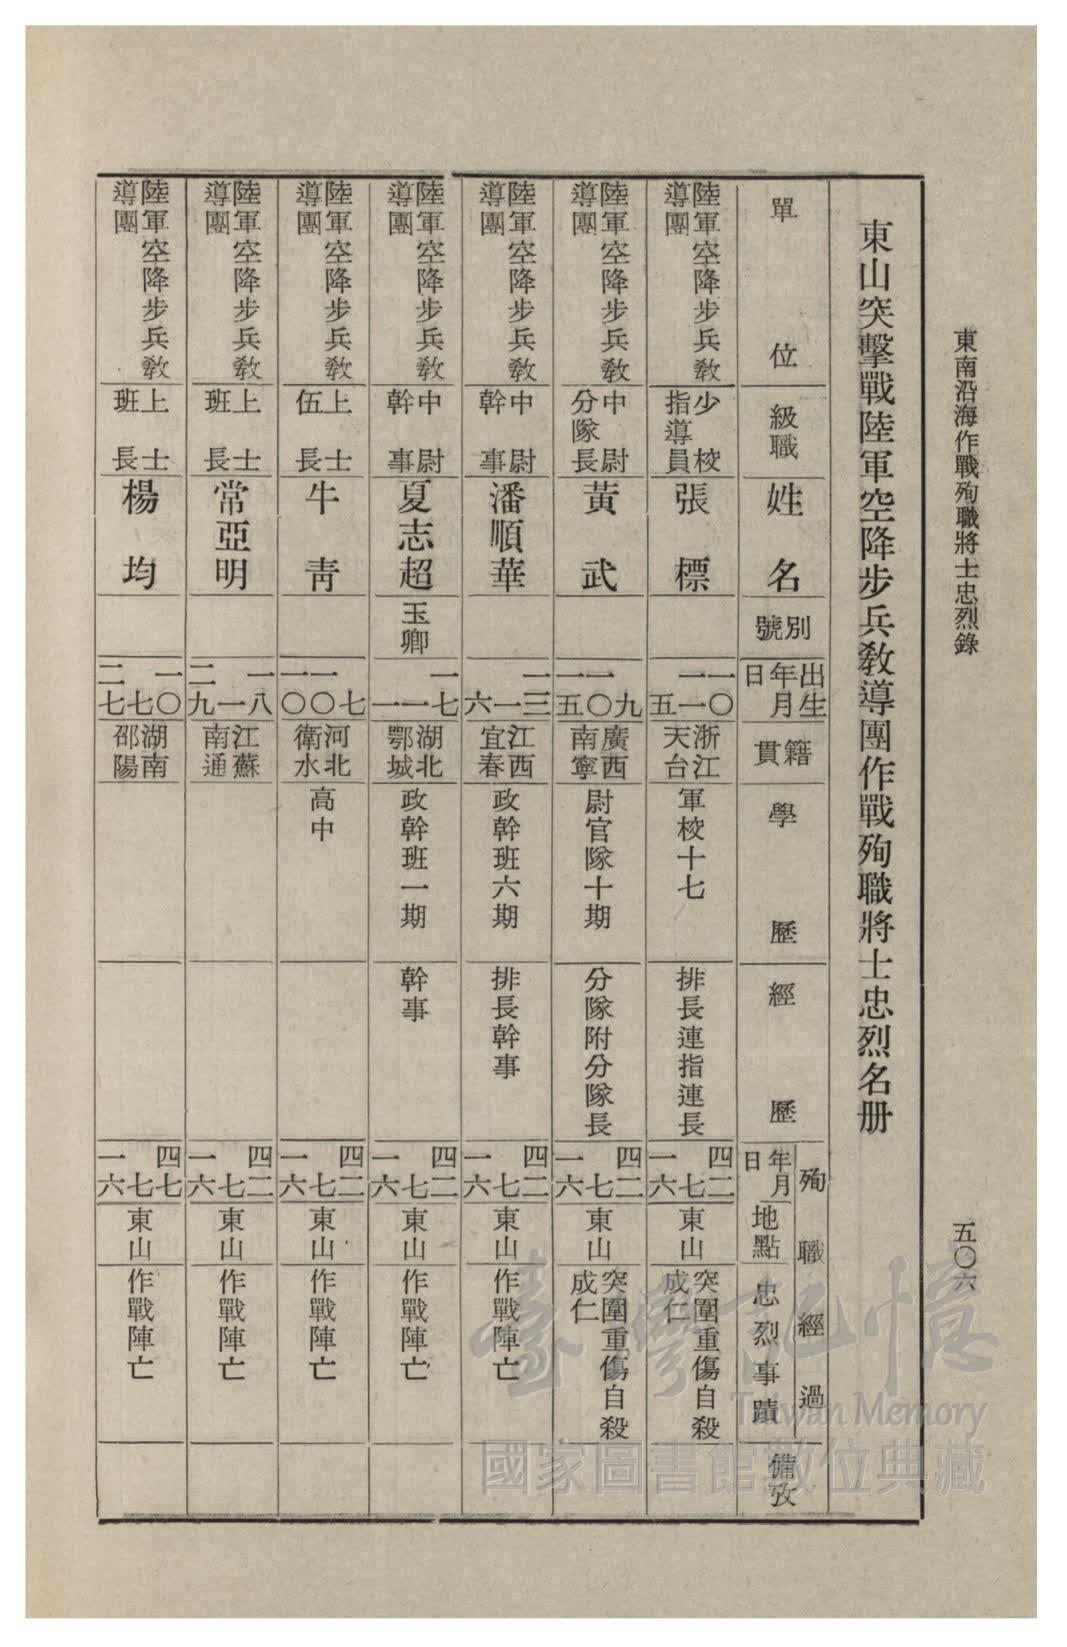 東南沿海作戰殉職將士忠烈錄
五〇六
東山突擊戰陸軍空降步兵教導團作戰殉職將士忠烈名册
單位
級職
姓名
別號
出生年月日
籍貫
學歷
經歷
殉職經過
年月日
地點
忠烈事蹟
備攷
陸軍空降步兵教導團
少校指導員
張標
一〇 一一 五
浙江天台
軍校十七
排長連指連長
四二 七 一六
東山
突圍重傷自殺成仁
陸軍空降步兵教導團
中尉分隊長
黃武
九 一〇 一五
廣西南寧
尉官隊十期
分隊附分隊長
四二 七 一六
東山
突圍重傷自殺成仁
陸軍空降步兵教導團
中尉幹事
潘順華
一三 一一 六
江西宜春
政幹班六期
排長幹事
四二 七 一六
東山
作戰陣亡
陸軍空降步兵教導團
中尉幹事
夏志超
玉卿
一七 一 一
湖北鄂城
政幹班一期
幹事
四二 七 一六
東山
作戰陣亡
陸軍空降步兵教導團
上士伍長
牛靑
七 一〇 一〇
河北衛水
高中
四二 七 一六
東山
作戰陣亡
陸軍空降步兵教導團
上士班長
常亞明
一八 一 二九
江蘇南通
四二 七 一六
東山
作戰陣亡
陸軍空降步兵教導團
上士班長
楊均
一〇 七 二七
湖南邵陽
四七 七 一六
東山
作戰陣亡
臺灣記憶
Taiwan Memory
國家圖書館數位典藏